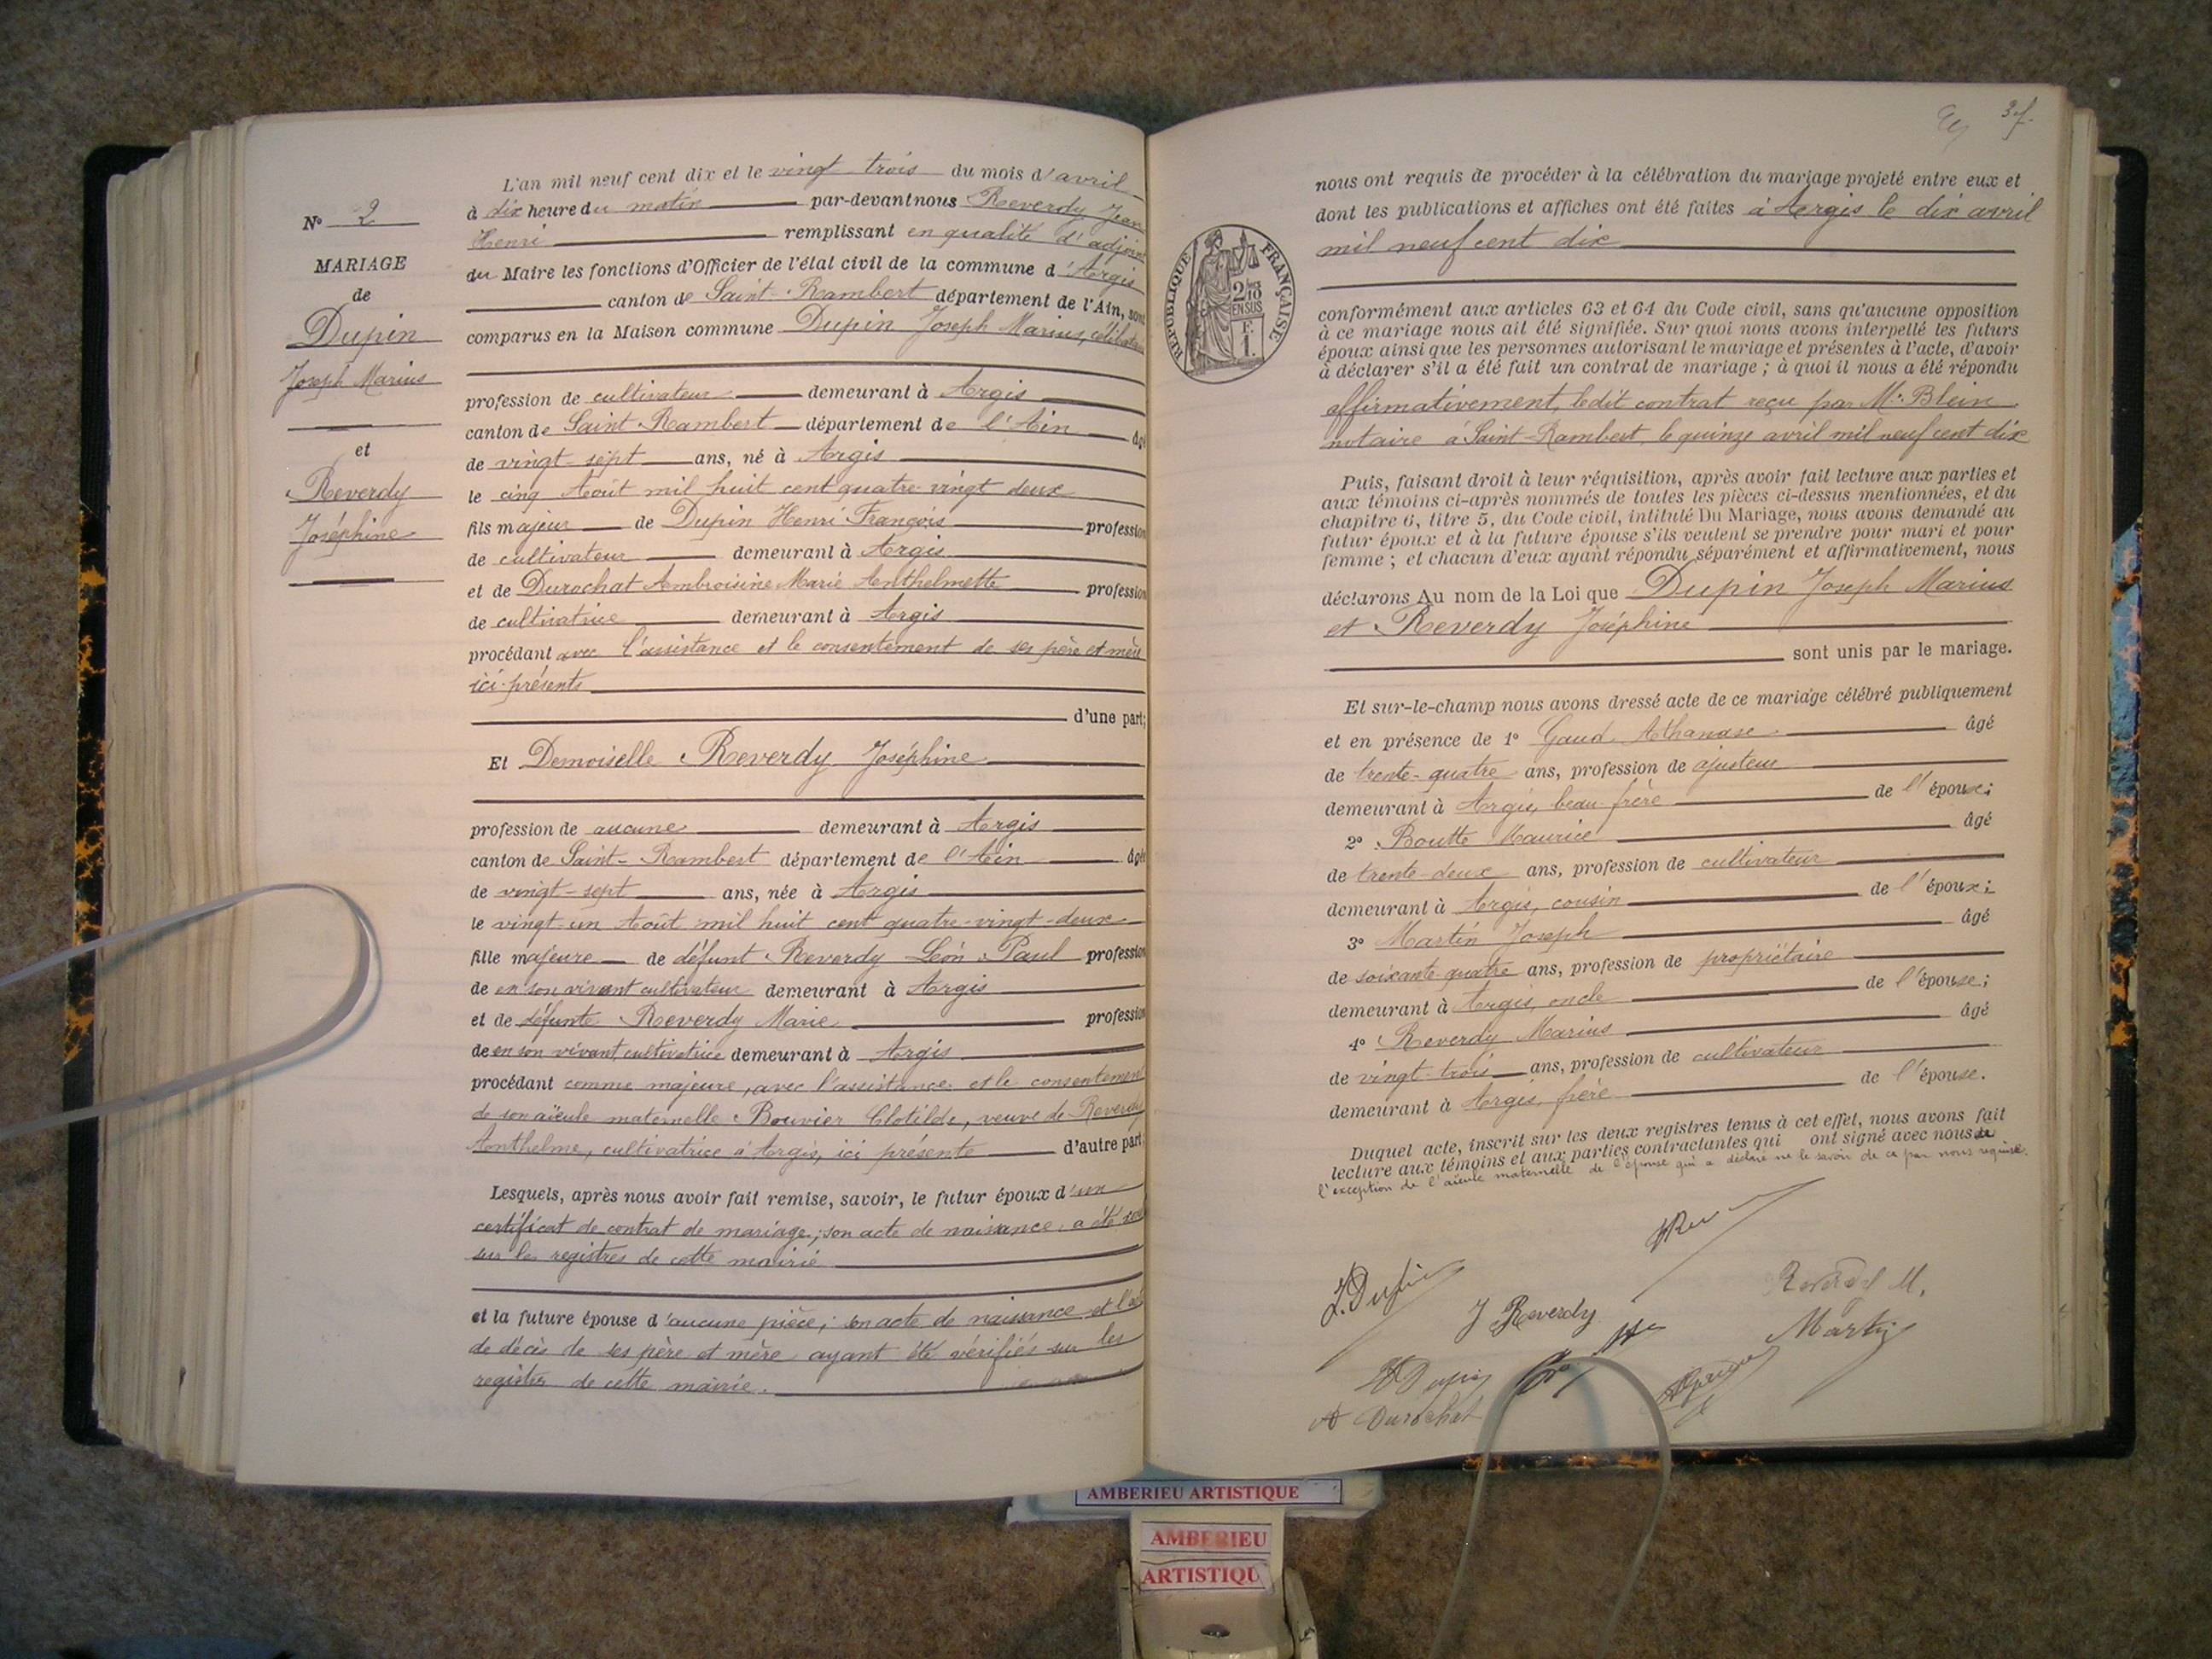 N° 2
MARIAGE
de
Dupin
Joseph Marius
et
Reverdy
Joséphine
L'an mil neuf cent dix et le vingt trois du mois d'avril
à dix heure du matin par-devant nous Reverdy Jean
Henri remplissant en qualité d'adjoint
du Maire les fonctions d'Officier de l'état civil de la commune d'Argis
canton de Saint-Rambert département de l'Ain, sont
comparus en la Maison commune Dupin Joseph Marius, célibataire
profession de cultivateur demeurant à Argis
canton de Saint Rambert département de l'Ain âgé
de vingt-sept ans, né à Argis
le cinq Août mil huit cent quatre-vingt deux
fils majeur de Dupin Henri François profession
de cultivateur demeurant à Argis
et de Durochat Ambroisine Marie Anthelmette profession
de cultivatrice demeurant à Argis
procédant avec l'assistance et le consentement de ses père et mère
ici présents
d'une part;
Et Demoiselle Reverdy Joséphine
profession de aucune demeurant à Argis
canton de Saint-Rambert département de l'Ain âgée
de vingt-sept ans, née à Argis
le vingt-un Août mil huit cent quatre-vingt-deux
fille majeure de défunt Reverdy Léon Paul profession
de en son vivant cultivateur demeurant à Argis
et de défunte Reverdy Marie profession
de en son vivant cultivatrice demeurant à Argis
procédant comme majeure, avec l'assistance et le consentement
de son aïeule maternelle Bouvier Clotilde, veuve de Reverdy
Anthelme, cultivatrice à Argis, ici présente d'autre part;
Lesquels, après nous avoir fait remise, savoir, le futur époux d'un
certificat de contrat de mariage; son acte de naissance a été
sur les registres de cette mairie
et la future épouse d'aucune pièce; son acte de naissance et
de décès de ses père et mère ayant été vérifiés sur les
registres de cette mairie.
3f.
RÉPUBLIQUE FRANÇAISE
2/10
EN SUS
F.
1.
nous ont requis de procéder à la célébration du mariage projeté entre eux et
dont les publications et affiches ont été faites à Argis le dix avril
mil neuf cent dix
conformément aux articles 63 et 64 du Code civil, sans qu'aucune opposition
à ce mariage nous ait été signifiée. Sur quoi nous avons interpellé les futurs
époux ainsi que les personnes autorisant le mariage et présentes à l'acte, d'avoir
à déclarer s'il a été fait un contrat de mariage; à quoi il nous a été répondu
affirmativement, ledit contrat reçu par Me Blein
notaire à Saint-Rambert, le quinze avril mil neuf cent dix
Puis, faisant droit à leur réquisition, après avoir fait lecture aux parties et
aux témoins ci-après nommés de toutes les pièces ci-dessus mentionnées, et du
chapitre 6, titre 5, du Code civil, intitulé Du Mariage, nous avons demandé au
futur époux et à la future épouse s'ils veulent se prendre pour mari et pour
femme; et chacun d'eux ayant répondu séparément et affirmativement, nous
déclarons Au nom de la Loi que Dupin Joseph Marius
et Reverdy Joséphine
sont unis par le mariage.
Et sur-le-champ nous avons dressé acte de ce mariage célébré publiquement
et en présence de 1° Gaud Athanase âgé
de trente-quatre ans, profession de ajusteur
demeurant à Argis, beau frère de l'épouse;
2° Boutte Maurice âgé
de trente-deux ans, profession de cultivateur
demeurant à Argis, cousin de l'époux;
3° Martin Joseph âgé
de soixante-quatre ans, profession de propriétaire
demeurant à Argis, oncle de l'épouse;
4° Reverdy Marius âgé
de vingt-trois ans, profession de cultivateur
demeurant à Argis, frère de l'épouse.
Duquel acte, inscrit sur les deux registres tenus à cet effet, nous avons fait
lecture aux témoins et aux parties contractantes qui ont signé avec nous à
l'exception de l'aïeule maternelle de l'épouse qui a déclaré ne le savoir de ce par nous requise.
J. Dupin
J Reverdy
Reverdy M.
Martin
H Dupin
A Durochat
AMBERIEU ARTISTIQUE
AMBERIEU
ARTISTIQU